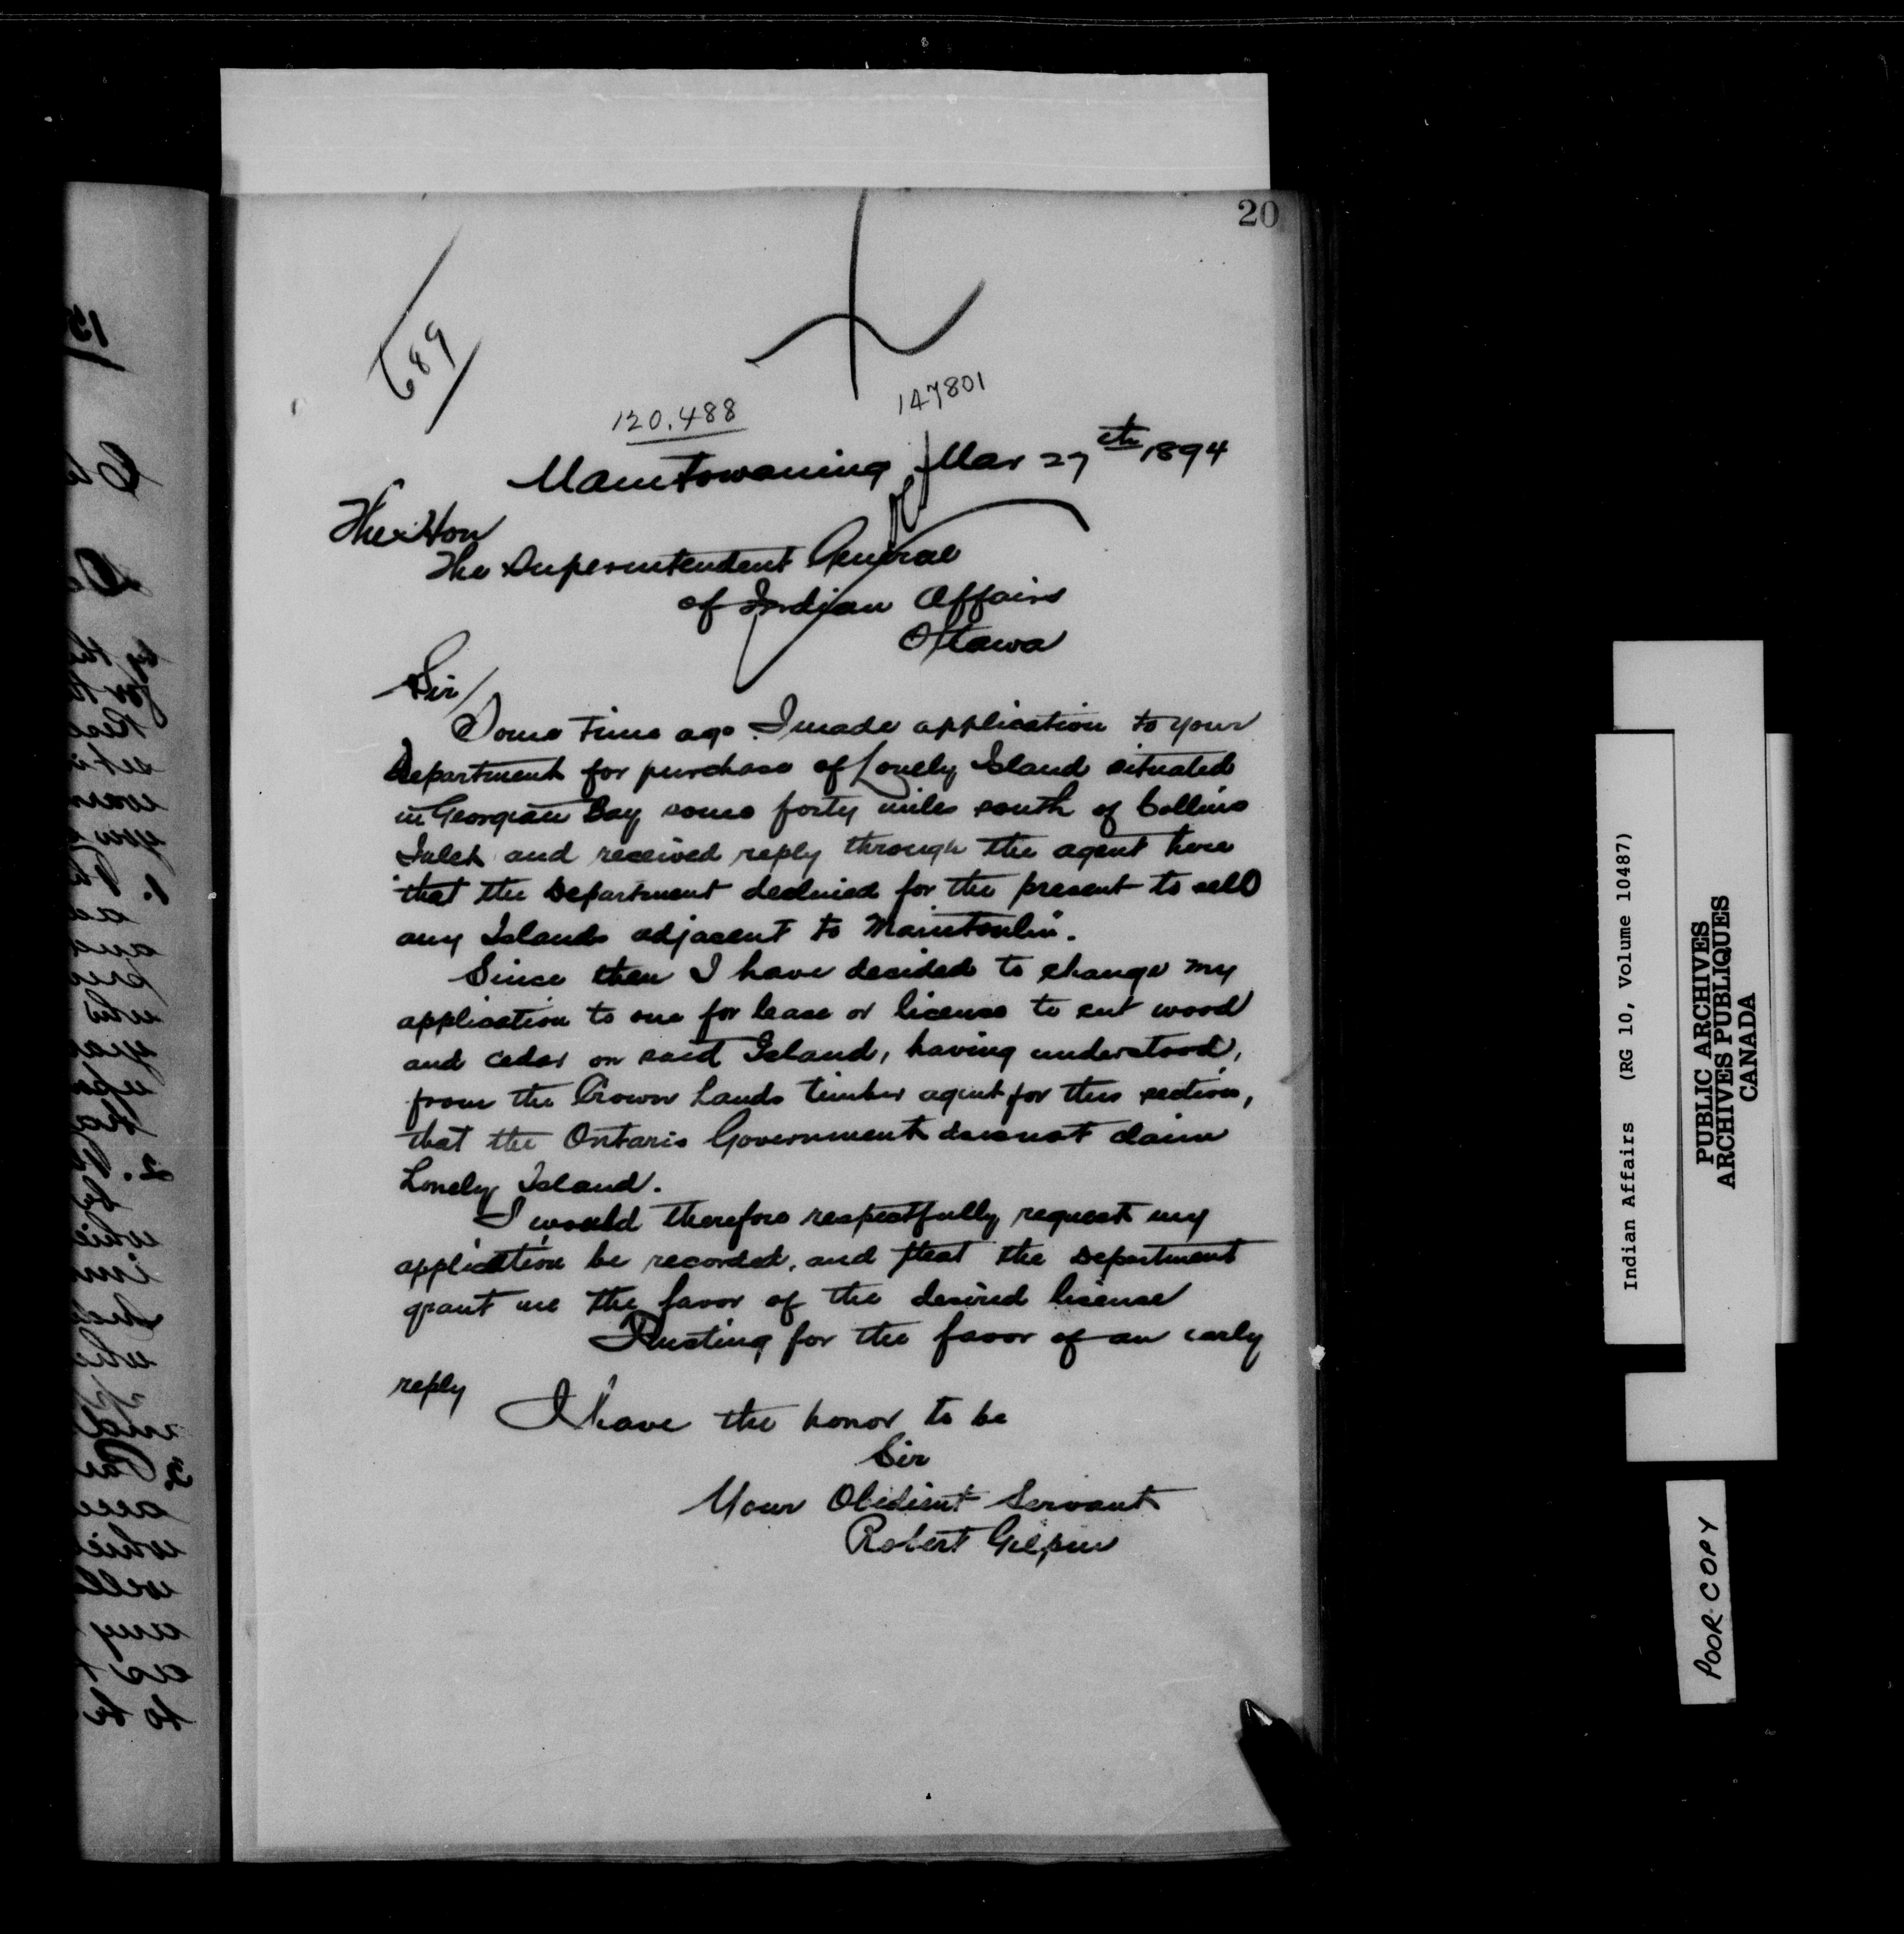 20
689
120.488
147801
Manitowaning Mar 27th 1894
The Hon
The Superintendent General
of Indian Affairs
Ottawa
Sir/
Some time ago I made application to your
Department for purchase of Lonely Island situated
in Georgian Bay some forty miles south of Collins
Inlet and received reply through the agent here
"that the Department declined for the present to sell
any Islands adjacent to Manitoulin".
Since then I have decided to change my
application to one for lease or license to cut wood
and cedar on said Island, having understood,
from the Crown Lands timber agent for this section,
that the Ontario Government does not claim
Lonely Island.
I would therefore respectfully request my
application be recorded, and that the Department
grant me the favor of the desired license
Trusting for the favor of an early
reply
I have the honor to be
Sir
Your Obedient Servant
Robert Gilpin
Indian Affairs (RG 10, Volume 10487)
PUBLIC ARCHIVES
ARCHIVES PUBLIQUES
CANADA
POOR COPY